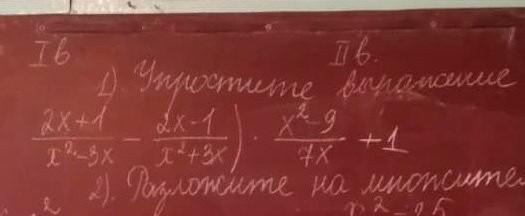 I в II в.
1). Упростите выражение
2x+1/x²-3x - 2x-1/x²+3x) · x²-9/7x +1
2). Разложите на множител